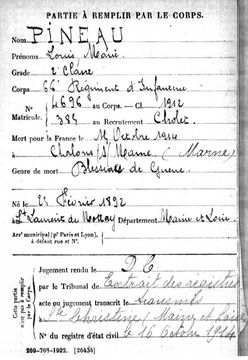 PARTIE À REMPLIR PAR LE CORPS.
Nom PINEAU
Prénoms Louis Marie
Grade 2e Classe
Corps 66e Régiment d'Infanterie
N° 4696 au Corps. — Cl. 1912
Matricule. 385 au Recrutement Cholet
Mort pour la France le 14 Octobre 1914
à Chalons s/ Marne (Marne)
Genre de mort Blessures de Guerre
Né le 25 Février 1892
à St Laurent du Mottay Département Maine et Loire
Arrt municipal (pr Paris et Lyon),
à défaut rue et N°.
Cette partie
n'est pas à remplir
par le Corps.
Jugement rendu le D C
par le Tribunal de Extrait des registres
acte ou jugement transcrit le transmis
Ste Christine (Maine et Loire
N° du registre d'état civil le 16 Octobre 1914
209-708-1922. [26434]